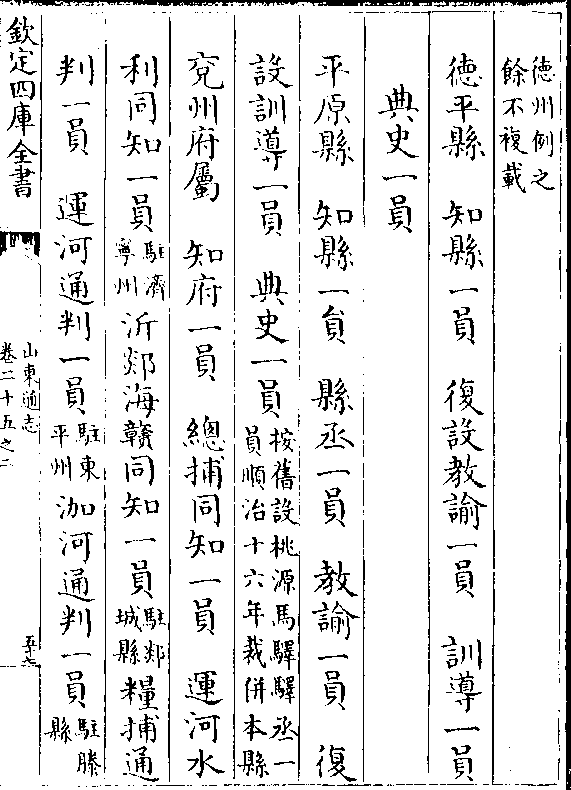 德州例之
餘不複載
德平縣　知縣一員　復設教諭一員　訓導一員
典史一員
平原縣　知縣一員　縣丞一員　教諭一員　復
設訓導一員　典史一員按舊設桃源馬驛驛丞一
員順治十六年裁併本縣
兗州府屬　知府一員　總捕同知一員　運河水
利同知一員駐濟
寧州沂郯海贛同知一員駐郯
城縣糧捕通
判一員　運河通判一員駐東
平州泇河通判一員駐滕
縣
欽定四庫全書
山東通志
卷二十五之二
五十七